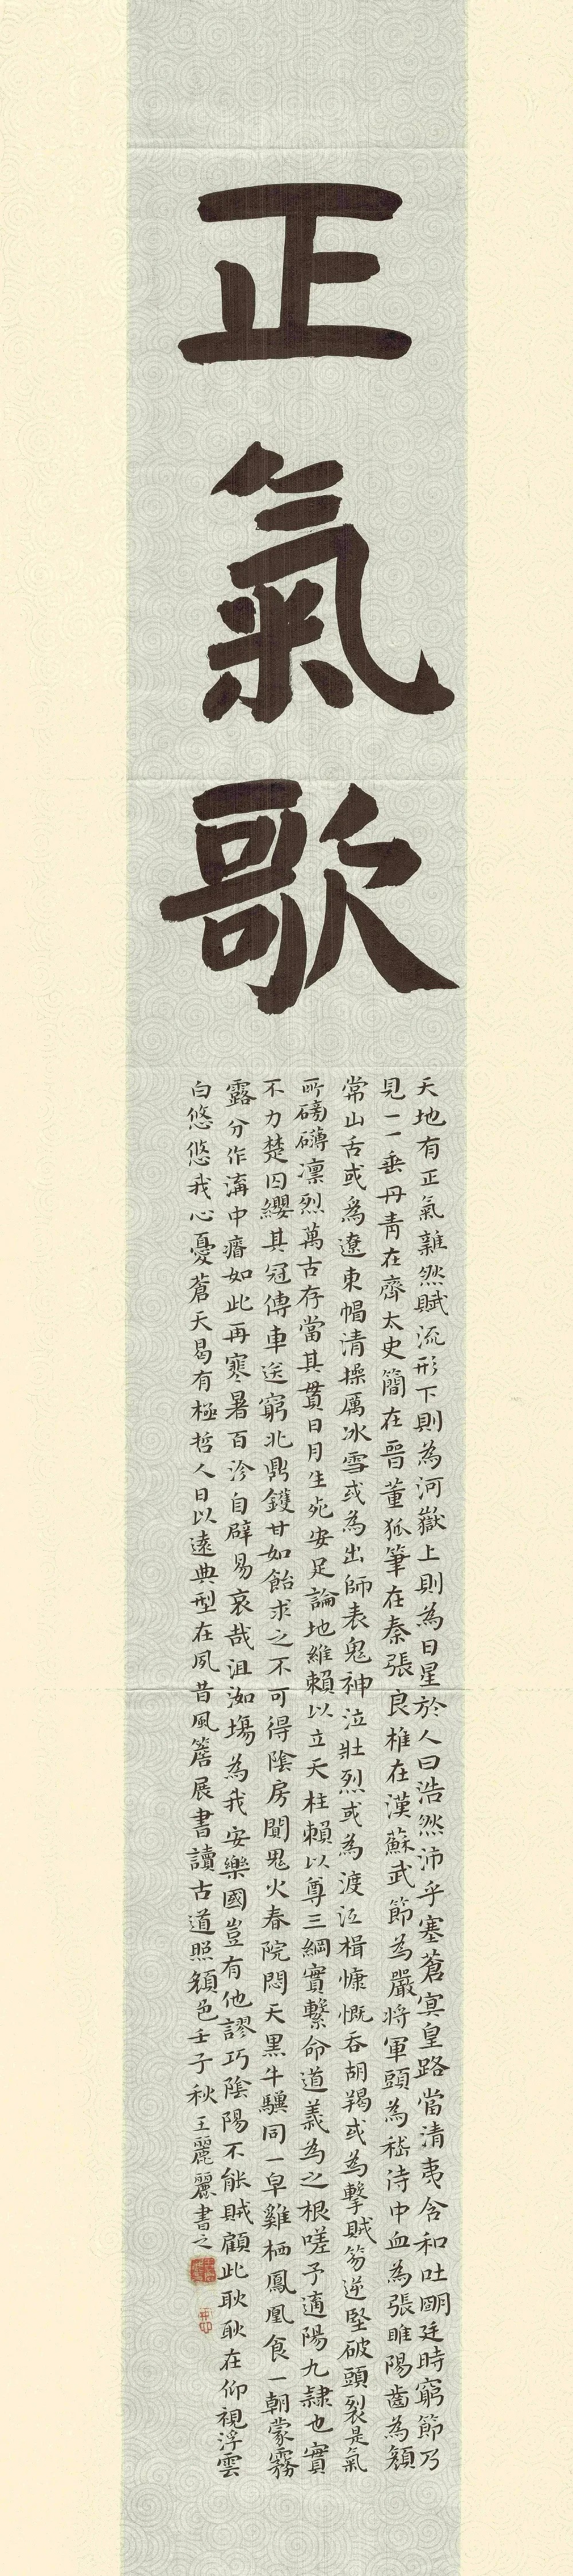 正氣歌
天地有正氣雜然賦流形下則為河嶽上則為日星於人曰浩然沛乎塞蒼冥皇路當清夷含和吐明廷時窮節乃
見一一垂丹青在齊太史簡在晉董狐筆在秦張良椎在漢蘇武節為嚴將軍頭為嵇侍中血為張睢陽齒為顏
常山舌或為遼東帽清操厲冰雪或為出師表鬼神泣壯烈或為渡江楫慷慨吞胡羯或為擊賊笏逆豎破頭裂是氣
所磅礴凜烈萬古存當其貫日月生死安足論地維賴以立天柱賴以尊三綱實繫命道義為之根嗟予遘陽九隸也實
不力楚囚纓其冠傳車送窮北鼎鑊甘如飴求之不可得陰房闃鬼火春院閟天黑牛驥同一皁雞栖鳳凰食一朝蒙霧
露分作溝中瘠如此再寒暑百沴自辟易哀哉沮洳場為我安樂國豈有他謬巧陰陽不能賊顧此耿耿在仰視浮雲
白悠悠我心憂蒼天曷有極哲人日以遠典型在夙昔風簷展書讀古道照顏色壬子秋王麗麗書之